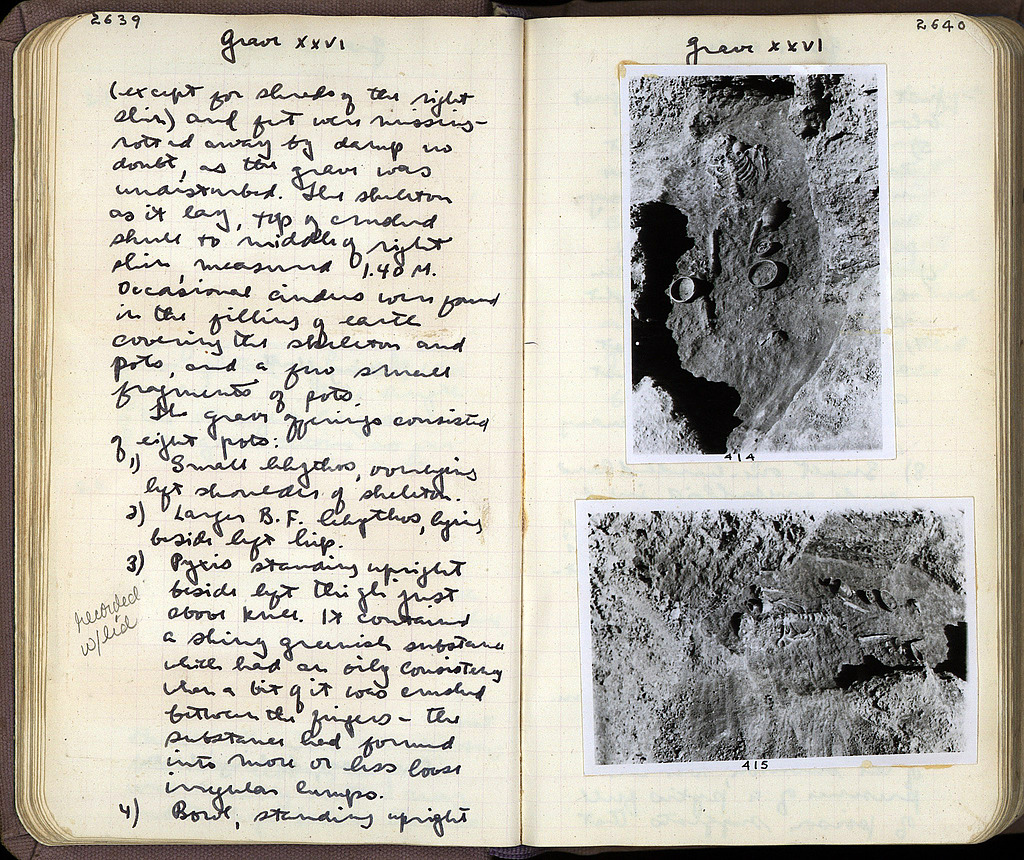 2639
Grave XXVI
(except for shreds of the right
shin) and feet were missing –
rotted away by damp no
doubt, as the grave was
undisturbed. The skeleton
as it lay, top of crushed
skull to middle of right
shin, measured 1.40 M.
Occasional cinders were found
in the filling of earth
covering the skeleton and
pots, and a few small
fragments of pots.
The grave offerings consisted
of eight pots:
1) Small lekythos, overlying
left shoulder of skeleton.
2) Larger B.F. lekythos, lying
beside left hip.
3) Pyxis standing upright
beside left thigh just
above knee. It contained
a shiny greenish substance
which had an oily consistency
when a bit of it was crushed
between the fingers – the
substance had formed
into more or less loose
irregular lumps.
recorded
w/lid
4) Bowl, standing upright
2640
Grave XXVI
414
415